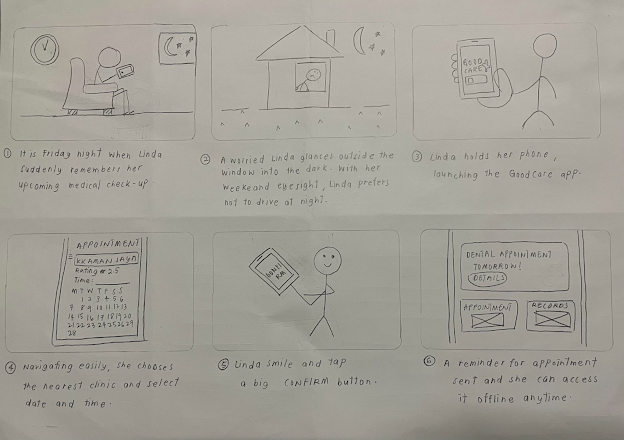 ① It is Friday night when Linda
suddenly remembers her
upcoming medical check-up
② A worried Linda glances outside the
window into the dark. With her
weekeand eyesight, Linda prefers
not to drive at night.
GOOD
CARE
③ Linda holds her phone,
launching the GoodCare app.
APPOINTMENT
KK AMAN JAYA
Rating # 25
Time:
M T W T F S S
1 2 3 4 5 6
7 8 9 10 11 12 13
14 15 16 17 18 19 20
21 22 23 24 25 26 27
28
④ Navigating easily, she chooses
the nearest clinic and select
date and time.
CONFI
RM
⑤ Linda smile and tap
a big CONFIRM button.
DENTAL APPOINTMENT
TOMORROW!
DETAILS
APPOINTMENT
RECORDS
⑥ A reminder for appointment
sent and she can access
it offline anytime.